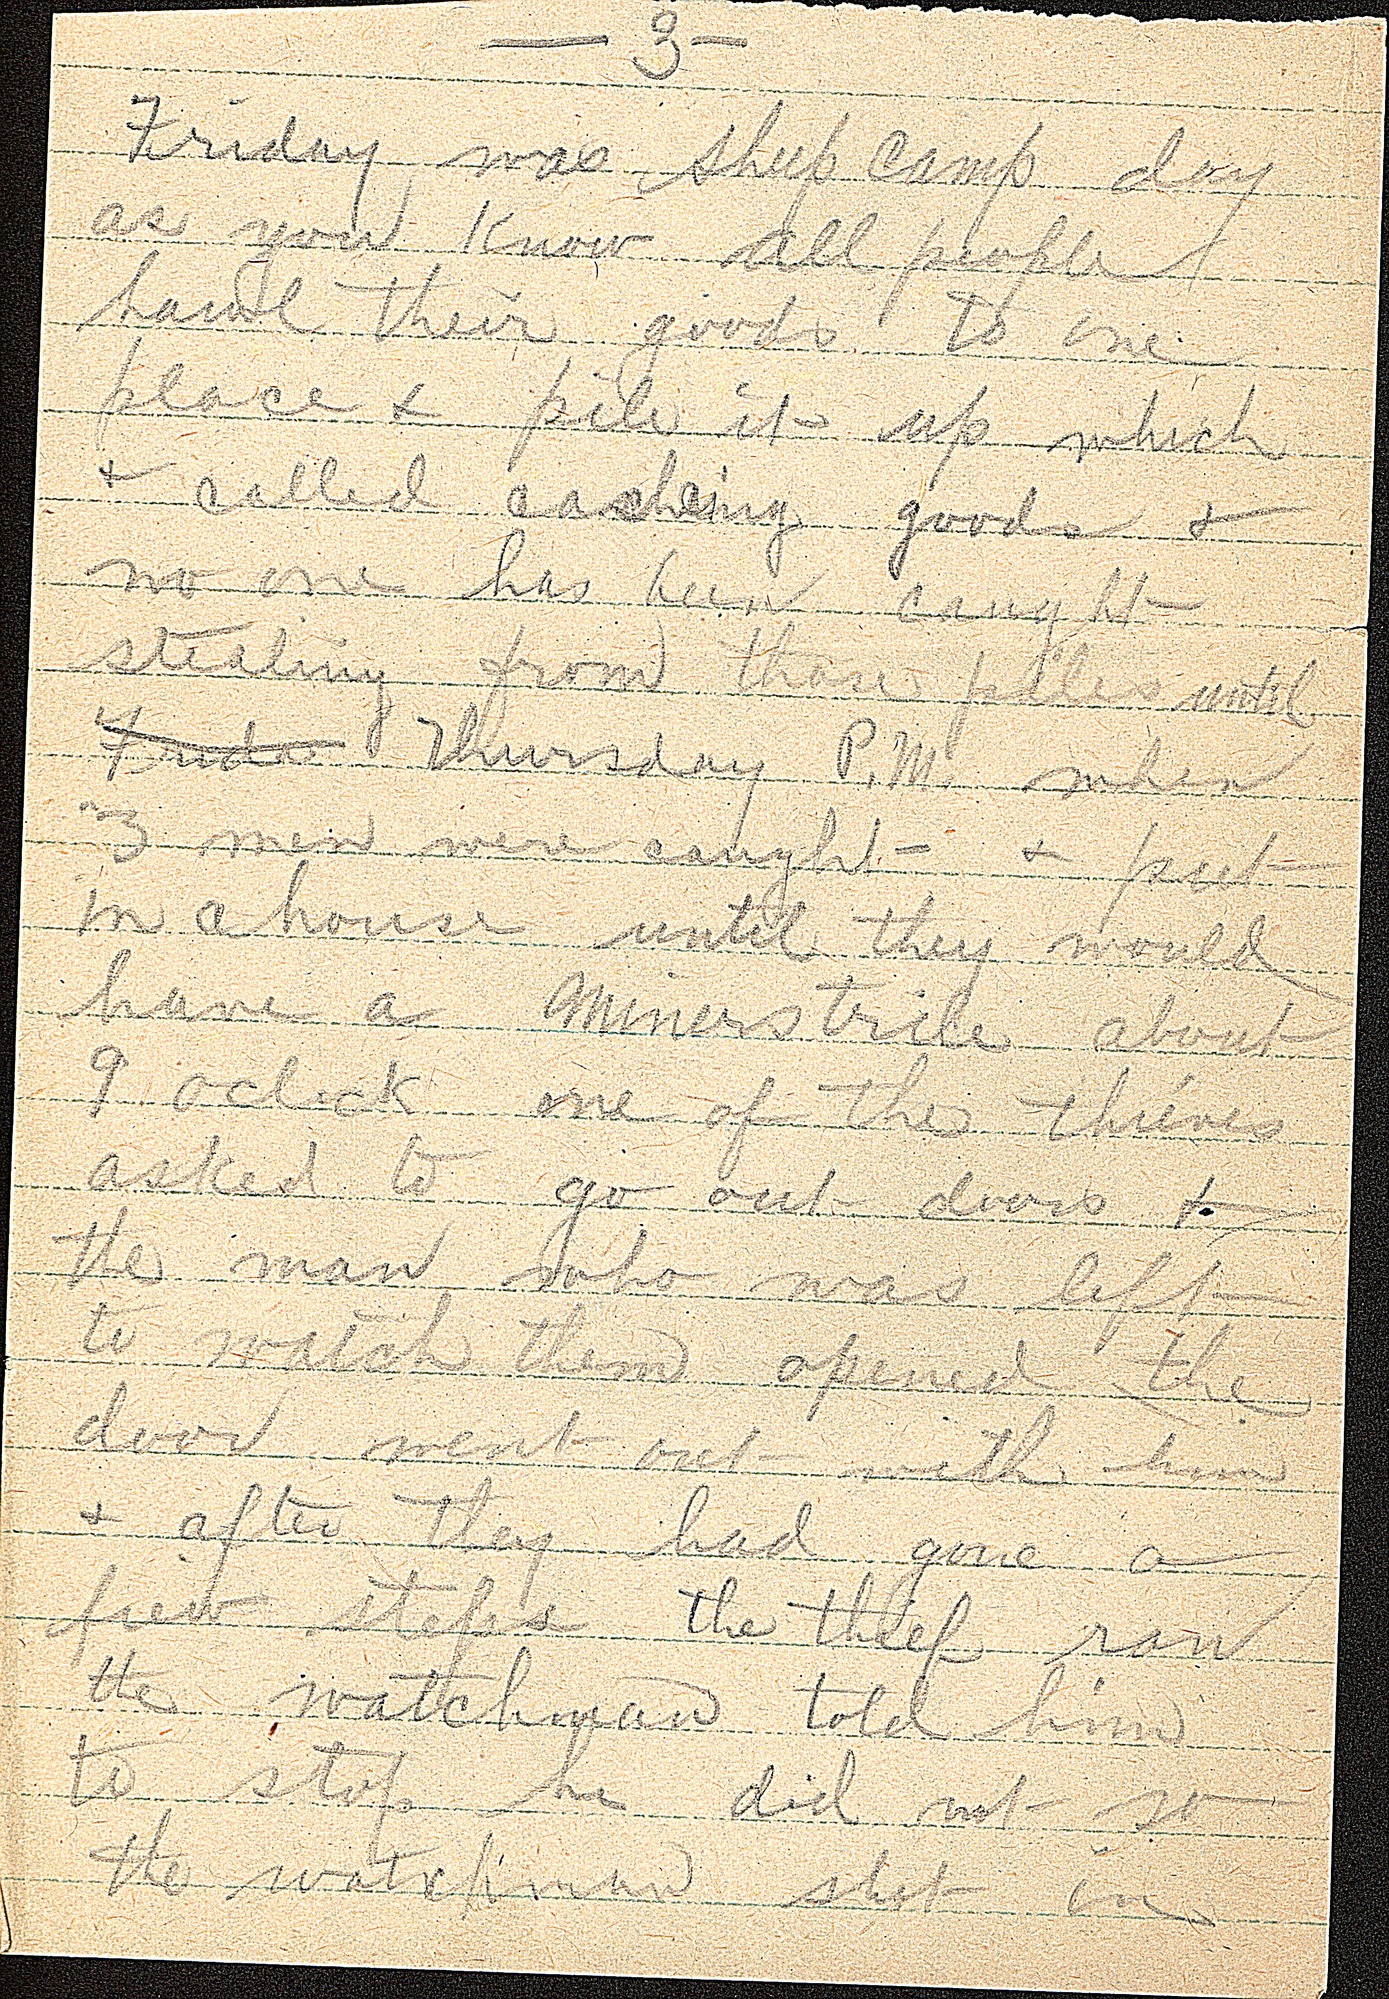 — 3 —
Friday was sheep camp day
as you Know all people
hawl their goods to one
place & pile it up which
& called cacheing goods &
no one has been caught
stealing from those piles until
Frida Thursday P.M. when
3 men were caught - & put
in a house until they would
have a Miners trile about
9 oclock one of the thieves
asked to go out doors &
the man who was left
to watch them opened the
door went out with him
& after they had gone a
few steps the thief ran
the watchman told him
to stop he did not so
the watchman shot in